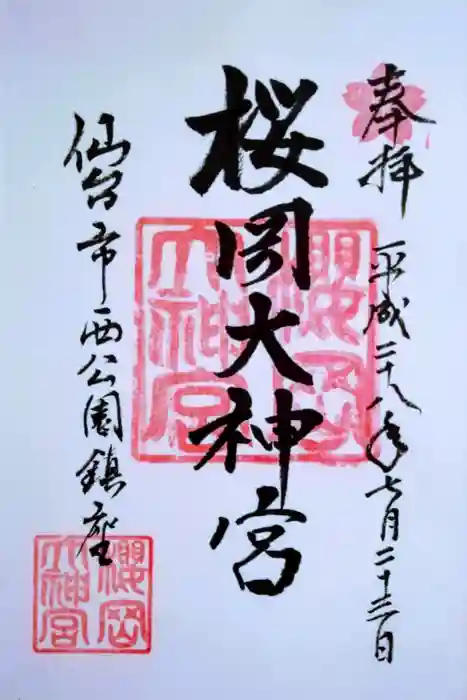 奉拝
平成二十八年七月二十三日
桜岡大神宮
仙台市西公園鎮座
櫻岡大神宮
櫻岡大神宮